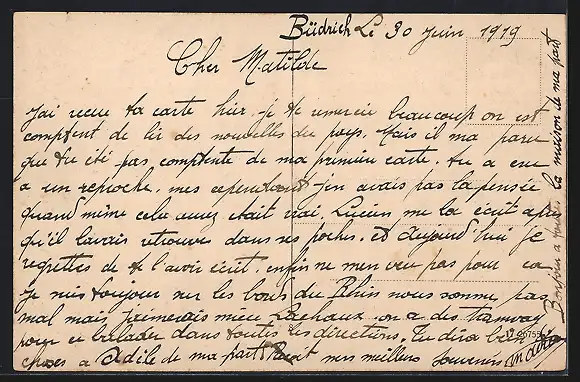 Büdrich Le 30 Juin 1919
Cher Matilde
J'ai recue ta carte hier. je te remercie beaucoup on est
comptent de lir des nouvelles du pays. Mais il ma paru
que tu été pas comptente de ma premiere carte. tu a crue
a un reproche. mes cependant j'en avais pas la pensée
quand même cela aurez etait vrai. Lucien me la écrit apres
qu'il lavais retrouve dans ses poches. et aujourd'hui je
regrettes de te l'avoir écrit. enfin ne men veu pas pour ca
Je suis toujour sur les bords du Rhin nous somme pas
mal mais j'aimerais mieu Lachaux. on a des tramway
pour ce balader dans toutes les directions. Tu dira bien
choses a Odile de ma part. mes meilleurs Souvenirs
Bonjour a toutes la maison de ma part